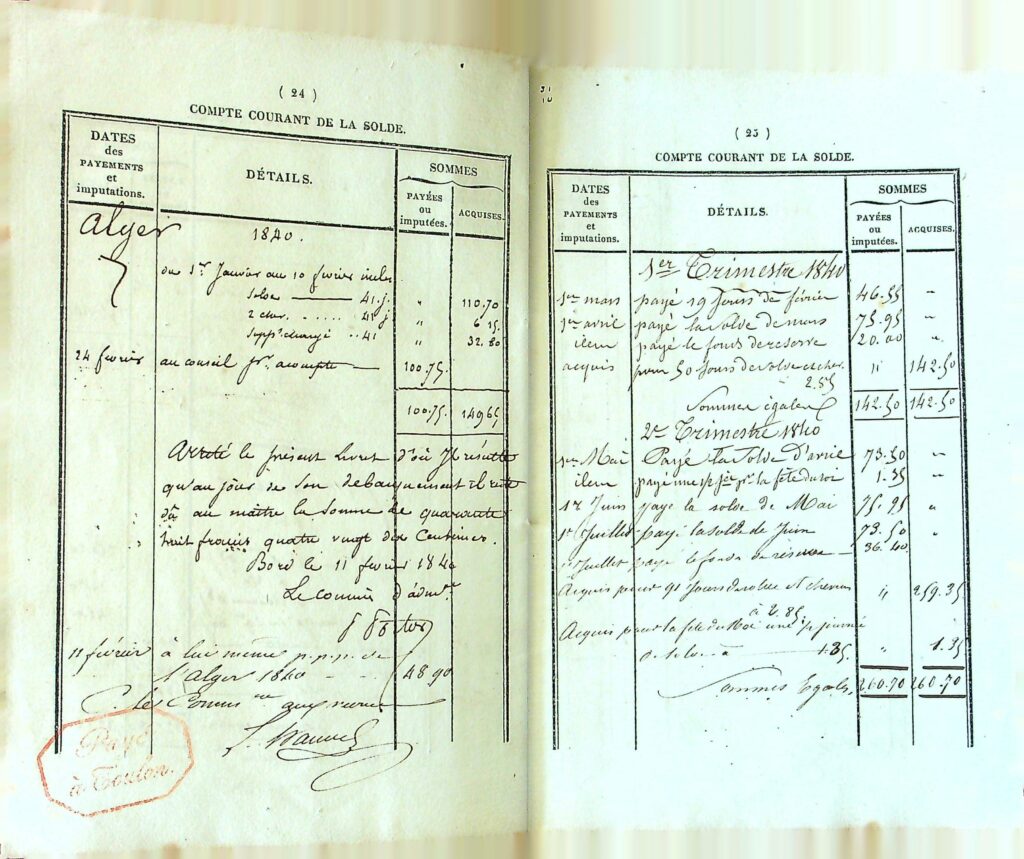 ( 24 )
COMPTE COURANT DE LA SOLDE.
DATES
des
PAYEMENTS
et
imputations.
DÉTAILS.
SOMMES
PAYÉES
ou
imputées.
ACQUISES.
Alger
1840.
du 1er Janvier au 10 février inclus
solde 41 j. " 110.70
2 chev. 41 j " 6 15.
suppt. chargé 41 " 32.80
24 février au conseil pr. acompte 100.75.
100.75. 149.65
Arreté le présent livret d'où Il résulte
qu'au jour de son debarquement il reste
dû au maître la somme de quarante
huit francs quatre vingt dix Centimes.
Bord le 11 février 1840
Le commis d'admon.
11 février à lui même p.p.p. de
l'Alger 1840 48 90
Le Commis aux revues
Payé
à Toulon.
( 25 )
COMPTE COURANT DE LA SOLDE.
DATES
des
PAYEMENTS
et
imputations.
DÉTAILS.
SOMMES
PAYÉES
ou
imputées.
ACQUISES.
1er Trimestre 1840
1er mars payé 19 Jours de février 46.55 "
1er avril payé la solde de mars 75.95 "
idem payé le fonds de reserve 20.00 "
acquis pour 50 Jours de solde et chev. " 142.50
2.85
Sommes égales 142.50 142.50
2e Trimestre 1840
1er Mai Payé la solde d'avril 73.50 "
idem payé une 1/2 jée pr la fête du roi 1.35 "
1er Juin payé la solde de Mai 75.95 "
1er Juillet payé la solde de Juin 73.50 "
1er Juillet payé le fonds de réserve 36.40
Acquis pour 91 Jours de solde et chevrons " 259.35
à 2.85.
Acquis pour la fête du Roi une 1/2 journée
de solde à 1.35. " 1.35
Sommes Egales. 260.70 260.70